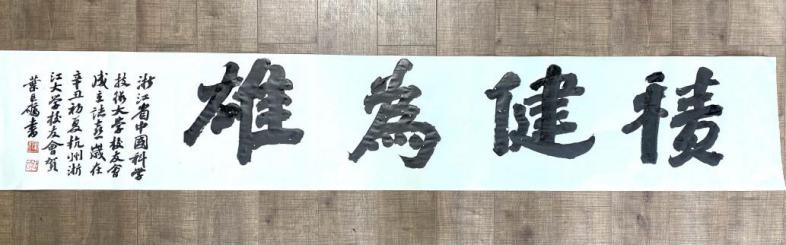 積健為雄
浙江省中國科学
技術大学校友會
成立誌喜歲在
辛丑初夏杭州浙
江大学校友會賀
葉書